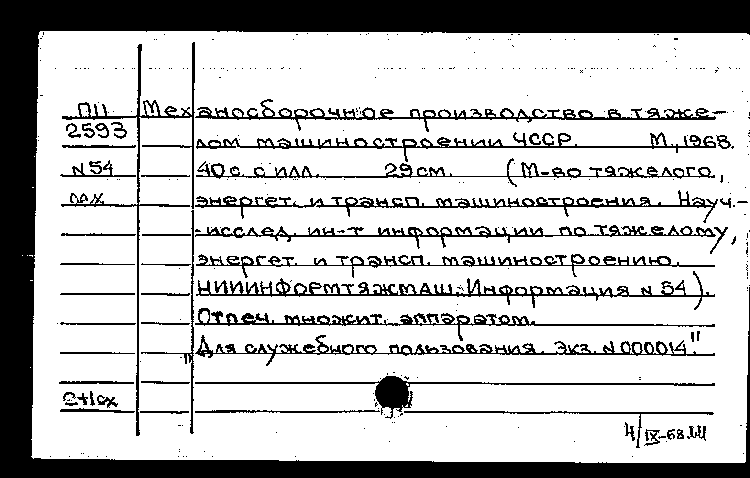 П11 Механосборочное производство в тяже-
2593 лом машиностроении ЧССР. М., 1968.
N 54 40 с. с илл. 29 см. (М-во тяжелого,
энергет. и трансп. машиностроения. Науч.-
-исслед. ин-т информации по тяжелому,
энергет. и трансп. машиностроению.
НИИИНФОРМТЯЖМАШ. Информация N 54).
Отпеч. множит. аппаратом.
"Для служебного пользования. Экз. N 000014."
4/IX-68